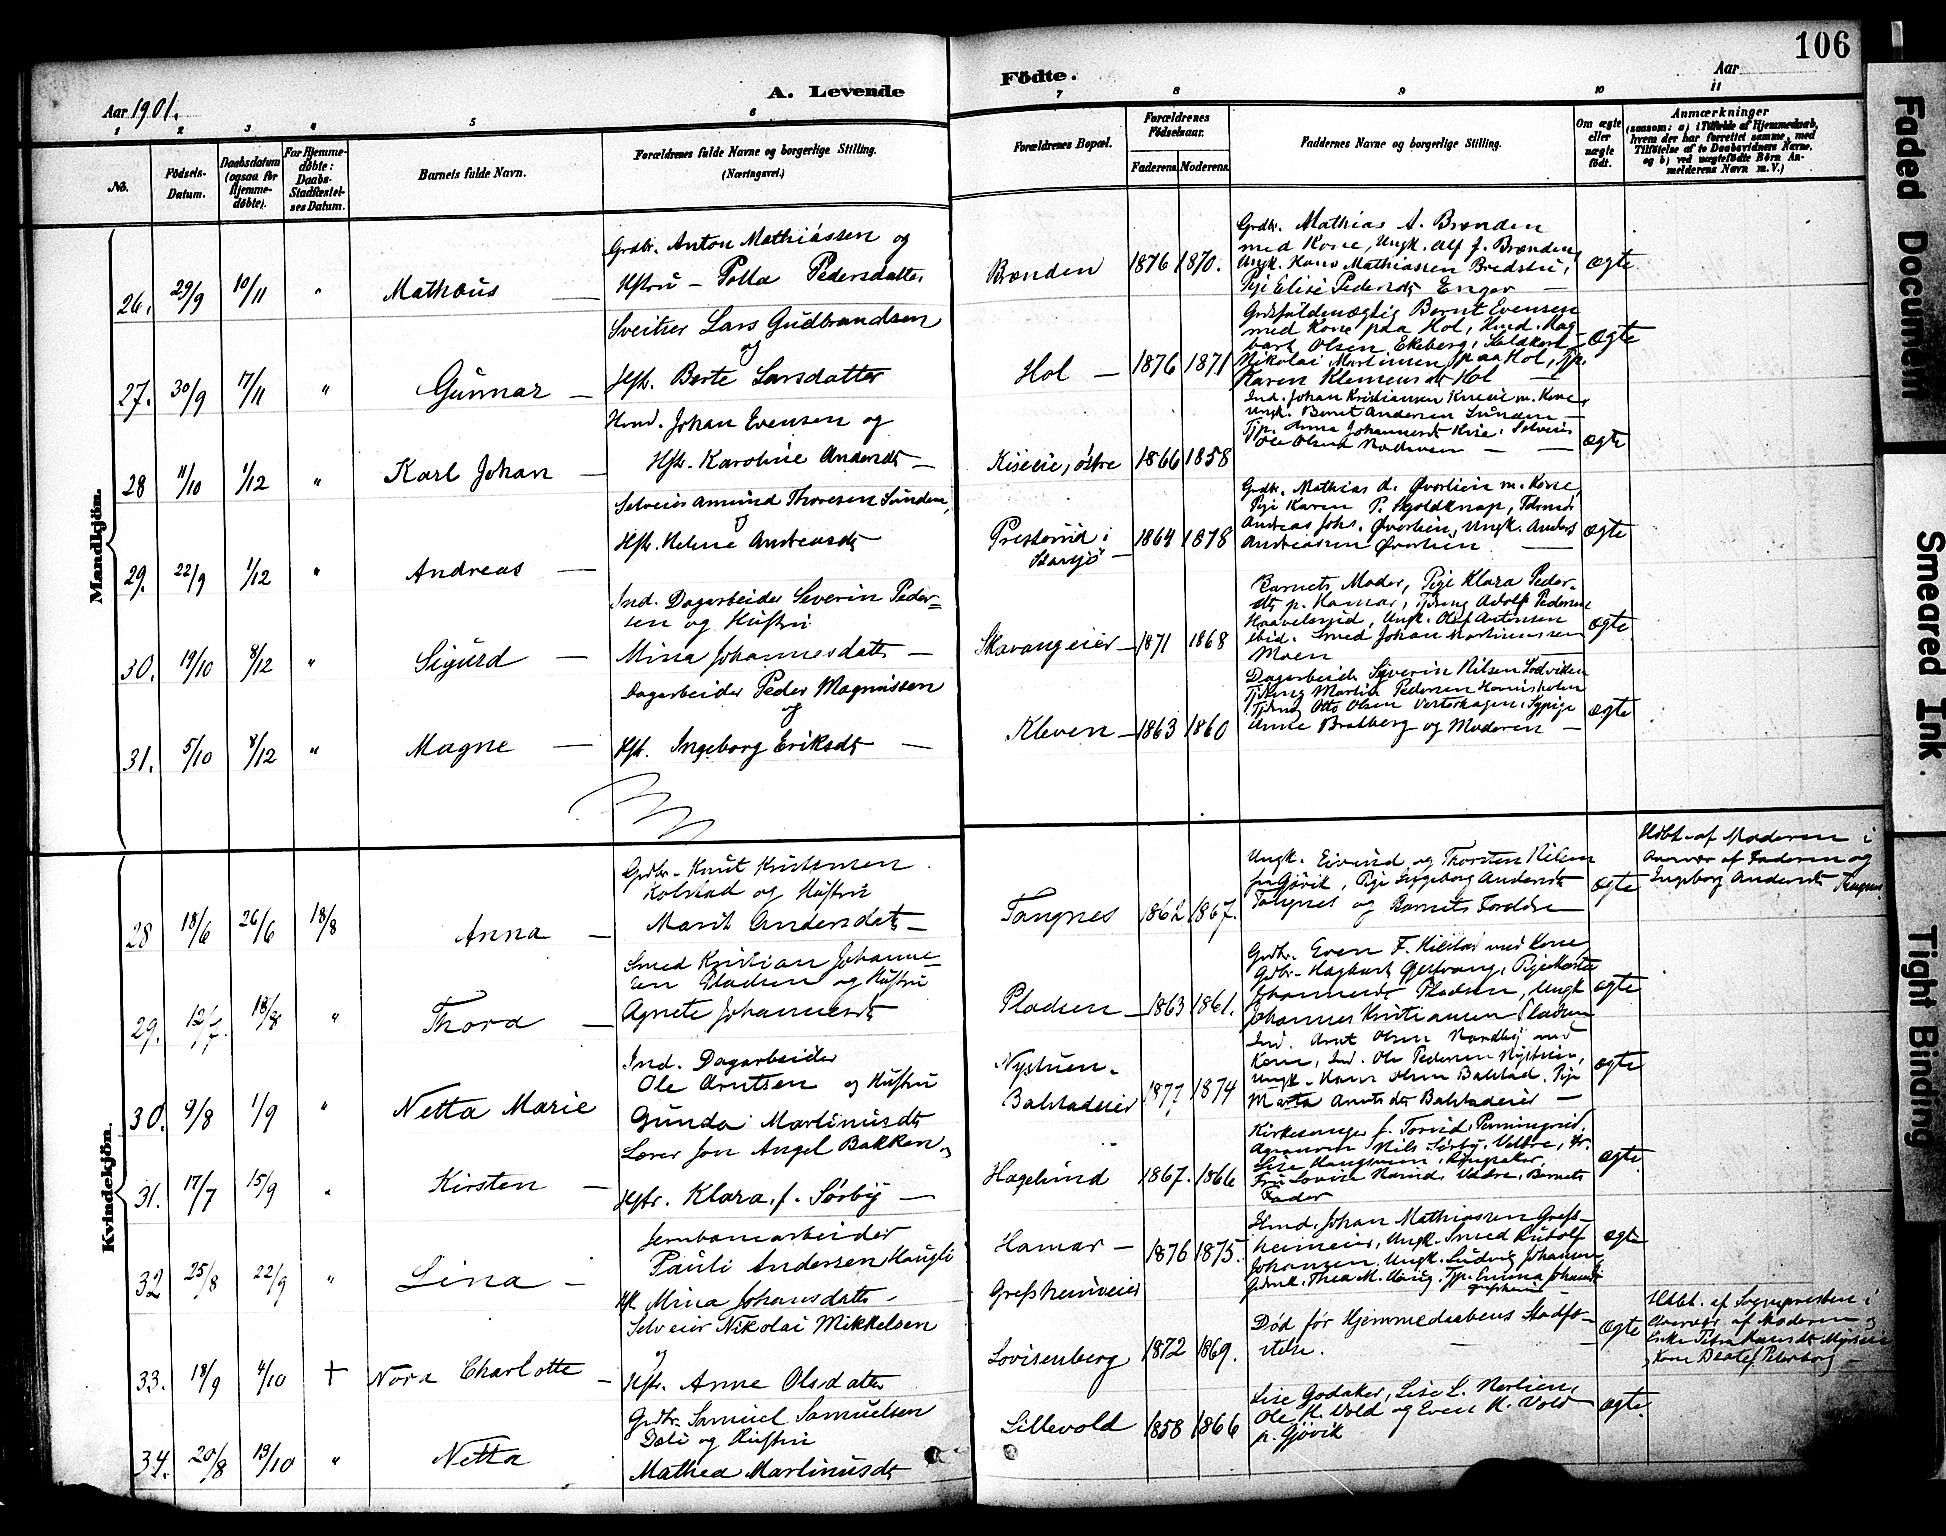 106
Aar 1901.
A. Levende
Födte.
Aar
1 2 3 4 5 6 7 8 9 10 11
No.
Födsels-
Datum.
Daabsdatum
(ogsaa for
Hjemme-
döbte).
For Hjemme-
döbte:
Daabs-
Stadfæstel-
ses Datum.
Barnets fulde Navn.
Forældrenes fulde Navne og borgerlige Stilling.
(Næringsvei.)
Forældrenes Bopæl.
Forældrenes
Födselsaar.
Faderens Moderens
Faddernes Navne og borgerlige Stilling.
Om ægte
eller
uægte
födt.
Anmærkninger
(saasom: a) i Tilfælde af Hjemmedaab,
hvem der har forrettet samme, med
Tilföielse af to Daabsvidners Navne,
og b) ved uægtefödte Börn An-
melderens Navn m. V.)
Mandkjön.
26. 29/9 10/11 " Mathæus —
Grdbr. Anton Mathiassen og
Hstru — Polla Pedersdatter
Brenden 1876 1870.
Grdbr. Mathias A. Brenden
med Kone, Ungk. Alf J. Brenden,
Ungk. Hans Mathiassen
Pige Elise Pedersdt Enger —
ægte
27. 30/9 17/11 " Gunnar —
Sveitser Lars Gudbrandsen
og
Hst. Berte Larsdatter
Hol — 1876 1871
Bernt Evensen
med Kone paa Hol, Hmd. Hag-
bart Olsen Ekeberg,
Nikolai Martinsen paa Hol, Tjp.
Karen Klemensdt Hol —
ægte
28 11/10 1/12 " Karl Johan —
Hmd. Johan Evensen og
Hst. Karoline Andersdt —
Kiseeie, östre 1866 1858
Ind. Johan Kristiansen Kiseeie m. Kone,
Ungk. Bernt Andersen Lunden —
Tjp. Anna Johannesdt Kise, Selveier
Ole Olsen
ægte
29. 22/9 1/12 " Andreas —
Selveier Amund Thoresen Lunden,
og
Hst. Helene Andreasdt
Presterud i
1864 1878
Grdbr. Mathias A. Øverlien m. Kone,
Pige Karen P. Skjoldknap,
Andreas Johs. Øverlien, Ungk. Anders
Andreassen Øverlien —
ægte
30. 19/10 8/12 " Sigurd —
Ind. Dagarbeider Severin Peder-
sen og Hustru
Mina Johannesdatt —
Skavangeier — 1871 1868
Barnets Moder, Pige Klara Peder-
sdt p. Hamar, Tjdreng Adolf Pedersen
Ungk. Olaf Antonsen
ibid. Smed Johan Martinussen
Moen
ægte
31. 5/10 8/12 " Magne —
Dagarbeider Peder Magnussen
og
Hst. Ingeborg Eriksdt —
Kleven — 1863 1860
Dagarbeider Severin Nilsen Sandviken
Tjdreng Martin Pedersen
Tjdreng Otto Olsen Sypige
Anne Bratberg og Moderen —
ægte
Kvindekjön.
28 18/6 26/6 18/8 Anna —
Grdbr. Knut Knutsen
Kolstad og Hustru
Marit Andersdatt —
Tangnes 1862 1867.
Ungk. Eivind og Thorsten Nilsen
fra Gjövik, Pige Ingeborg Andersdt
Tangnes og Barnets Forældre
ægte
Hdbt. af Moderen i
Nærvær af Faderen og
Ingeborg Andersdt Tangnes
29. 12/7. 18/8 " Thora —
Smed Kristian Johanne-
sen Pladsen og Hustru
Agnete Johannesdt
Pladsen — 1863 1861.
Grdbr. Even F. med Kone
Grdbr. Hagbart Gjestvang, Pige Marte
Johannesdt Pladsen, Ungk
Johannes Kristiansen Pladsen
ægte
30. 9/8 1/9 " Netta Marie
Ind. Dagarbeider
Ole Arntsen og Hustru
Gunda Martinusdt
Nystuen-
Balstadeier 1877 1874
Ind. Arnt Olsen med
Kone, Ind. Ole Pedersen Nystuen,
Ungk. Hans Olsen Balstad, Pige
Marta Arntsdt Balstadeier —
ægte
31. 17/7 15/9 " Kirsten —
Lærer Jon Angel Bakken og
Hstr. Klara, f. Sørby —
Hagelund 1867. 1866
Kirkesanger
Agronom Nils Sørby, Valdre, Fr.
Lise Ringsaker,
Fru Lovise Valdre, Barnets
Fader
ægte
32 25/8 22/9 " Lina —
Jernbanearbeider
Pauli Andersen Haugli
Hst. Mina Johansdatt.
Hamar —
Grefsheimeier
1876 1875.
Hmd. Johan Mathiassen Grefs-
heimeier, Ungk. Smed Rudolf
Johansen, Ungk. Ludvig Johansen
Thea M. Tjp. Emma Johansdt
Grefsheim
ægte
33. 18/9 4/10 † Nora Charlotte —
Selveier Nikolai Mikkelsen
og
Hstr. Anne Olsdatter
Lovisenberg 1872 1869.
Död för Hjemmedaabens Stadfæ-
stelse.
ægte
Hdbt. af Sognepresten i
Nærvær af Moderen og
Enke Petra
34. 20/8 13/10 " Netta
Grdbr. Samuel Samuelsen
Dæli og Hustru
Mathea Martinusdt
Lillevold 1858 1866
Lise Godaker, Lise L. Nerlien,
Ole H. Vold og Even H. Vold
p. Gjövik
ægte.
Faded Document
Smeared Ink.
Tight Binding